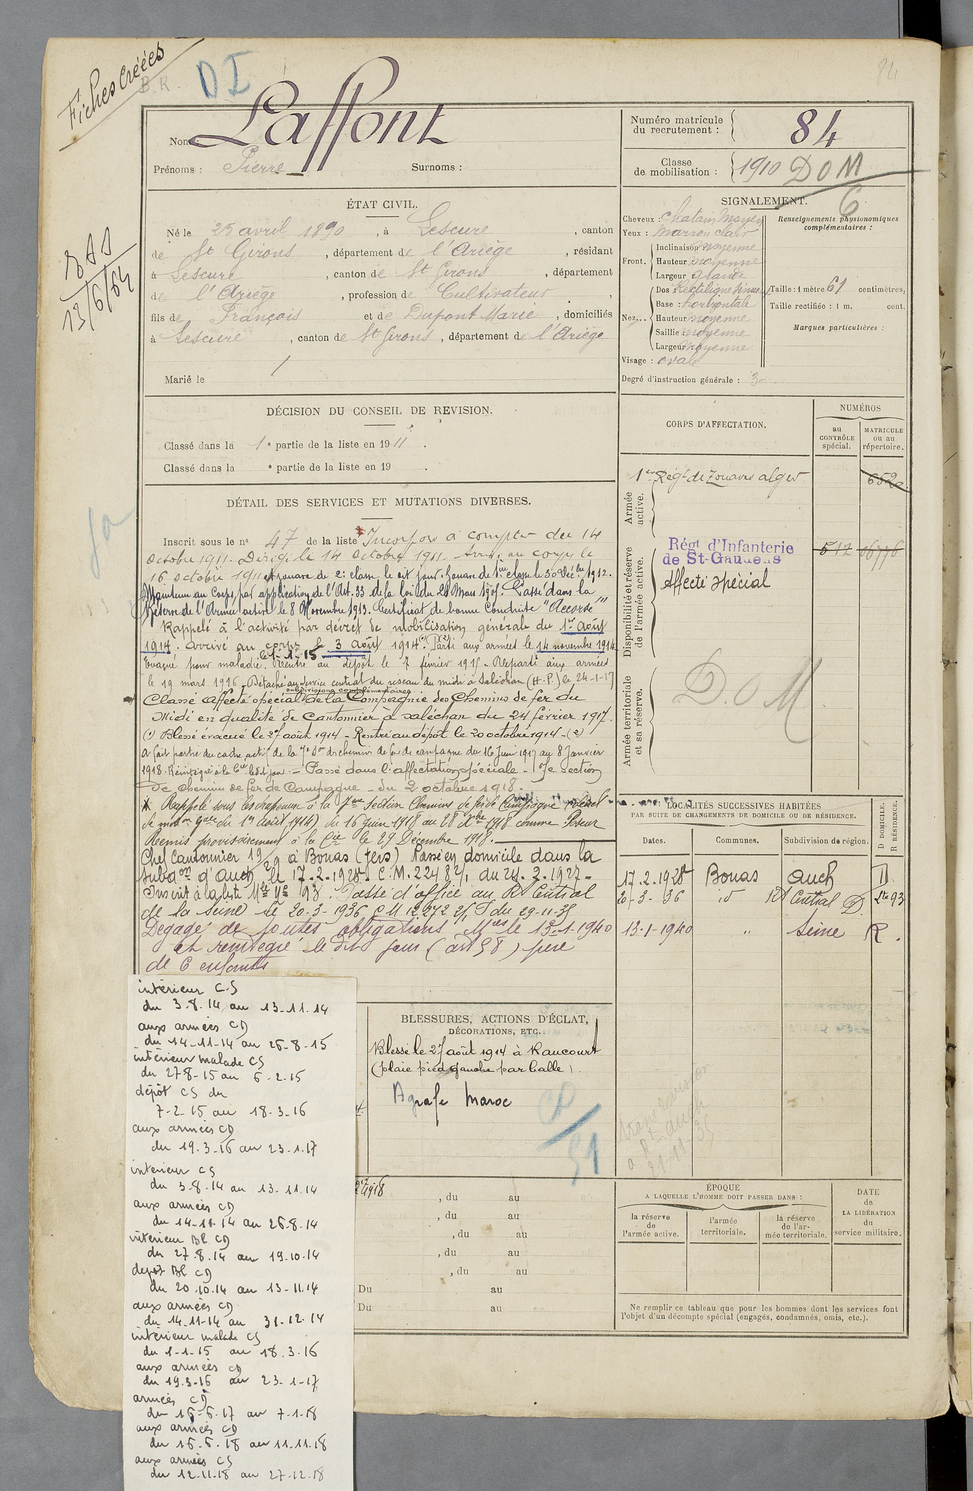 Fiches créées
B.R. D I
84
Nom : Laffont
Prénoms : Pierre Surnoms :
Numéro matricule du recrutement : 84
Classe de mobilisation : 1910 DOM
6
BAS
13/6/64
ÉTAT CIVIL.
Né le 25 avril 1890, à Lescure, canton
de St Girons, département de l'Ariège, résidant
à Lescure, canton de St Girons, département
de l'Ariège, profession de Cultivateur
fils de François et de Dupont Marie, domiciliés
à Lescure, canton de St Girons, département de l'Ariège
Marié le /
SIGNALEMENT.
Cheveux : chatain moyen
Yeux : marron clair
Front. Inclinaison moyenne
Hauteur moyenne
Largeur grande
Nez... Dos rectiligne sinueux
Base : horizontale
Hauteur moyenne
Saillie moyenne
Largeur moyenne
Visage : ovale
Renseignements physionomiques complémentaires :
Taille : 1 mètre 61 centimètres.
Taille rectifiée : 1 m. cent.
Marques particulières :
Degré d'instruction générale : 3
DÉCISION DU CONSEIL DE REVISION.
Classé dans la 1e partie de la liste en 1911.
Classé dans la e partie de la liste en 19 .
CORPS D'AFFECTATION.
NUMÉROS
au CONTRÔLE spécial.
MATRICULE ou au répertoire.
Armée active.
1er Régt de Zouaves alger
Disponibilité et réserve de l'armée active.
Régt d'Infanterie
de St-Gaudens
Affecté spécial
Armée territoriale et sa réserve.
D.O.M
DÉTAIL DES SERVICES ET MUTATIONS DIVERSES.
Inscrit sous le no 47 de la liste Incorporé à compter du 14
octobre 1911. Dirigé le 14 octobre 1911. Arrivé au corps le
16 octobre 1911 et zouave de 2e classe le dit jour. Zouave de 1ère classe le 30 Décbre 1912.
Maintenu au Corps par application de l'Art. 33 de la loi du 21 Mars 1905. Passé dans la
Réserve de l'Armée active le 8 Novembre 1913. Certificat de bonne conduite "Accordé"
Rappelé à l'activité par décret de mobilisation générale du 1er Août
1914. Arrivé au corps le 3 août 1914. Parti aux armées le 14 novembre 1914
le 1-1-15
Évacué pour maladie. Rentré au dépôt le 7 février 1915. Reparti aux armées
le 19 mars 1916. Détaché au service central du réseau du midi à Saléchan (H.P.) le 24-1-17
subdivisions complémentaires
Classé affecté spécial de la Compagnie des Chemins de fer du
Midi en qualité de Cantonnier à Saléchan du 24 février 1917.
(1) Blessé évacué le 27 août 1914 - Rentré au dépôt le 20 octobre 1914 - (2)
a fait partie du cadre actif de la 7e Son de chemins de fer de campagne du 16 juin 1917 au 8 Janvier
1918. Réintégré à la Cie le dit jour. - Passé dans l'affectation spéciale - 7e Section
de chemin de fer de Campagne - du 2 octobre 1918 -
Rappelé sous les drapeaux à la 7ème Section Chemins de fer de Campagne
de mobon gale du 1er Août 1914) du 16 juin 1918 au 28 Xbre 1918 comme Poseur
Remis provisoirement à la Cie le 29 Décembre 1918.
Chef cantonnier 1929 à Bonas (Gers) Passé en domicile dans la
Subdon d'auch le 17.2.1928 C.M. 2248 2/1 du 24.2.1927 -
Passé d'office au Rt Central
de la Seine le 20-3-1936 C M 12.272 2/1 T du 29-11-35
Dégagé de toutes obligations Mres le 13-1-1940
et renvoyé le dit jour (art 58) père
de 6 enfants
LOCALITÉS SUCCESSIVES HABITÉES
PAR SUITE DE CHANGEMENTS DE DOMICILE OU DE RÉSIDENCE.
Dates. Communes. Subdivision de région. D DOMICILE. R RÉSIDENCE.
17.2.1928 Bonas auch D
20-3-36 id Rt Central D.
13-1-1940 " Seine R.
BLESSURES, ACTIONS D'ÉCLAT,
DÉCORATIONS, ETC.
Blessé le 27 août 1914 à Raucourt
(plaie pied gauche par balle).
Agrafe Maroc
, du au
, du au
, du au
, du au
, du au
Du au
Du au
ÉPOQUE
A LAQUELLE L'HOMME DOIT PASSER DANS :
la réserve de l'armée active.
l'armée territoriale.
la réserve de l'armée territoriale.
DATE de LA LIBÉRATION du service militaire.
Ne remplir ce tableau que pour les hommes dont les services font
l'objet d'un décompte spécial (engagés, condamnés, omis, etc.).
intérieur CS
du 3.8.14 au 13-11.14
aux armées CD
du 14-11-14 au 26-8-15
intérieur malade CS
du 27-8-15 au 6-2.15
dépôt CS du
7-2.15 au 18-3-16
aux armées CD
du 19.3-16 au 23-1.17
intérieur CS
du 3.8.14 au 13.11.14
aux armées CD
du 14-11.14 au 26.8.14
intérieur Bl CD
du 27.8.14 au 19.10.14
dépôt Bl CD
du 20.10.14 au 13-11.14
aux armées CD
du 14-11-14 au 31-12.14
intérieur malade CS
du 1-1-15 au 18.3-16
aux armées CD
du 19.3-16 au 23-1-17
armées CD
du 16-6-17 au 7-1-18
aux armées CD
du 16-6.18 au 11-11.18
aux armées CS
du 12-11-18 au 27-12.18